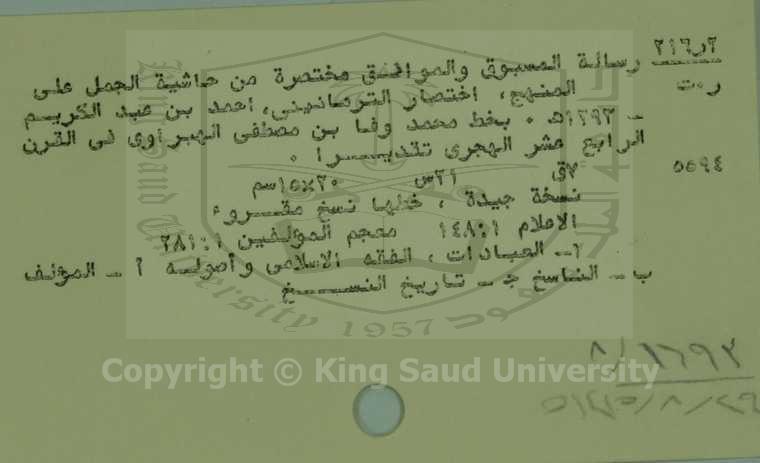 ٢١٦٫٢ رسالة المسبوق والموافق مختصرة من حاشية الجمل على
ر٠ت المنهج، اختصار الترمانيني، احمد بن عبد الكريم
- ١٢٩٣هـ ٠ بخط محمد وفا بن مصطفى الهبراوى فى القرن
الرابع عشر الهجرى تقديـــرا ٠
٥٥٩٤ ٧ق ٢١س ٢٠×١٥سم
نسخة جيدة ، خطها نسخ مقـروء
الاعلام ١٤٨:١ معجم المؤلفين ٢٨١:١
١- العبادات ، الفقه الاسلامى وأصوله أ - المؤلف
ب - الناسخ جـ - تاريخ النســـخ
King Saud University
1957
Copyright © King Saud University
٨/١٦٩٢